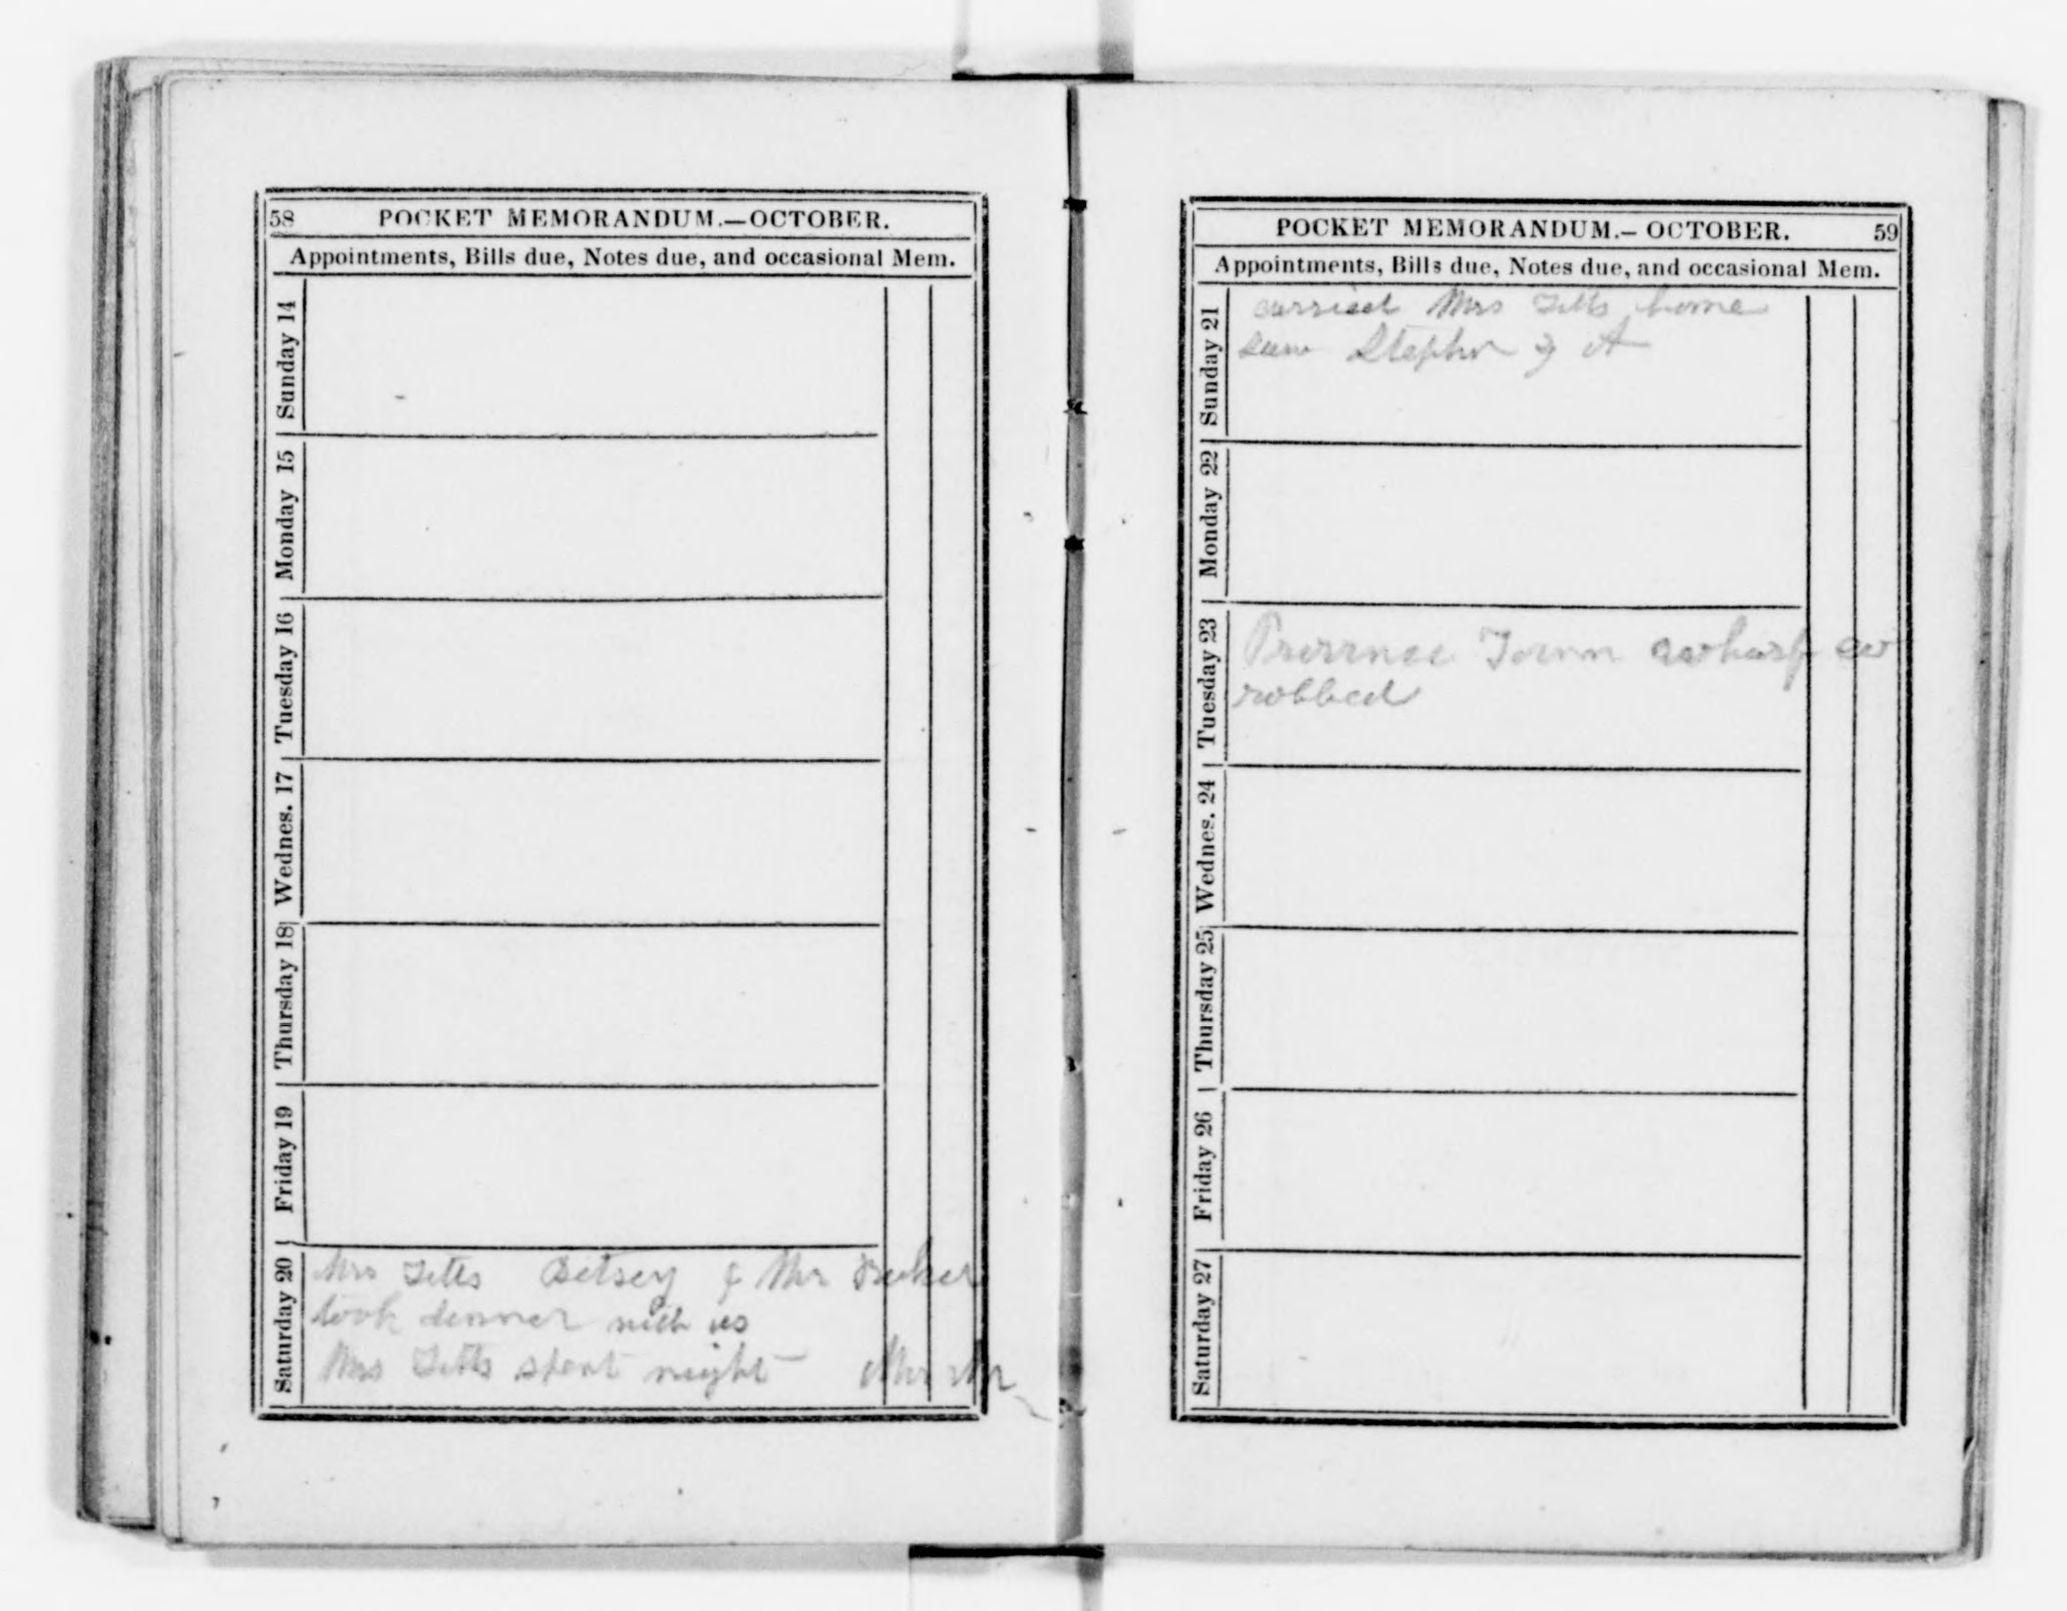 58 POCKET MEMORANDUM.—OCTOBER.
Appointments, Bills due, Notes due, and occasional Mem.
Sunday 14
Monday 15
Tuesday 16
Wednes. 17
Thursday 18
Friday 19
Saturday 20
Mrs Titts Betsey & Mr
took dinner with us
Mrs Titts spent night
POCKET MEMORANDUM.—OCTOBER. 59
Appointments, Bills due, Notes due, and occasional Mem.
Sunday 21
carried Mrs Titts home
saw Stephn & A
Monday 22
Tuesday 23
Town
robbed
Wednes. 24
Thursday 25
Friday 26
Saturday 27